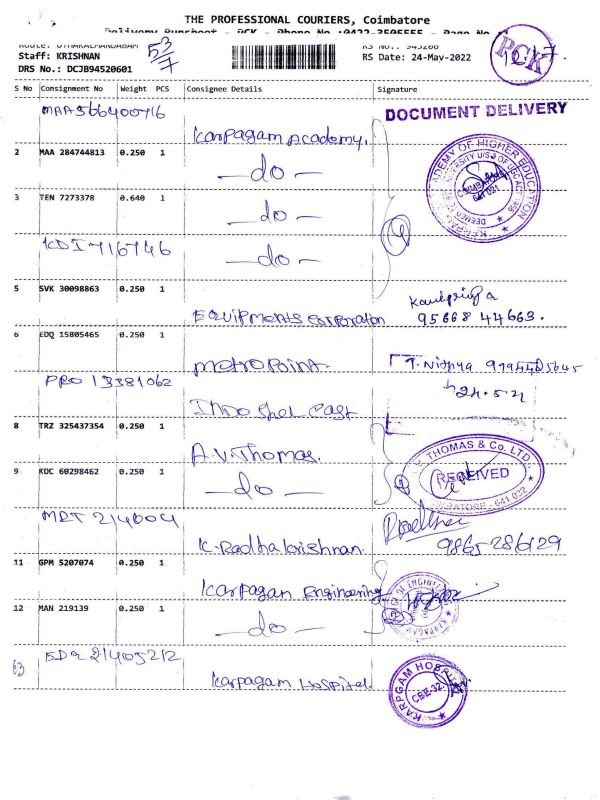 THE PROFESSIONAL COURIERS, Coimbatore
Delivery Runsheet - PCK - Phone No :0422-3505555 - Page No
53/7
PCK
Staff: KRISHNAN
RS Date: 24-May-2022
DRS No.: DCJB94520601
S No Consignment No Weight PCS Consignee Details Signature
MAA566400716
DOCUMENT DELIVERY
Karpagam Academy.
2 MAA 284744813 0.250 1
—do—
ACADEMY OF HIGHER EDUCATION
COIMBATORE
641 021
3 TEN 7273378 0.640 1
—do—
(4)
KDI716746
—do—
5 SVK 30098863 0.250 1
Equipments Corporation
95668 44663.
6 EDQ 15805465 0.250 1
MetroPoint.
T. Nithya 9994425645
PRO 13381062
Indo Shel Cast
8 TRZ 325437354 0.250 1
A.V. Thomas.
THOMAS & Co. LTD.
RECEIVED
COIMBATORE - 641 032
9 KDC 60298462 0.250 1
—do—
(2)
MRT 214004
K. Radhakrishnan.
9865286129
11 GPM 5207074 0.250 1
Karpagam Engineering
12 MAN 219139 0.250 1
—do—
(2)
13 EDQ 21405212
Karpagam Hospital
KARPGAM HOSPITAL
CBE-32